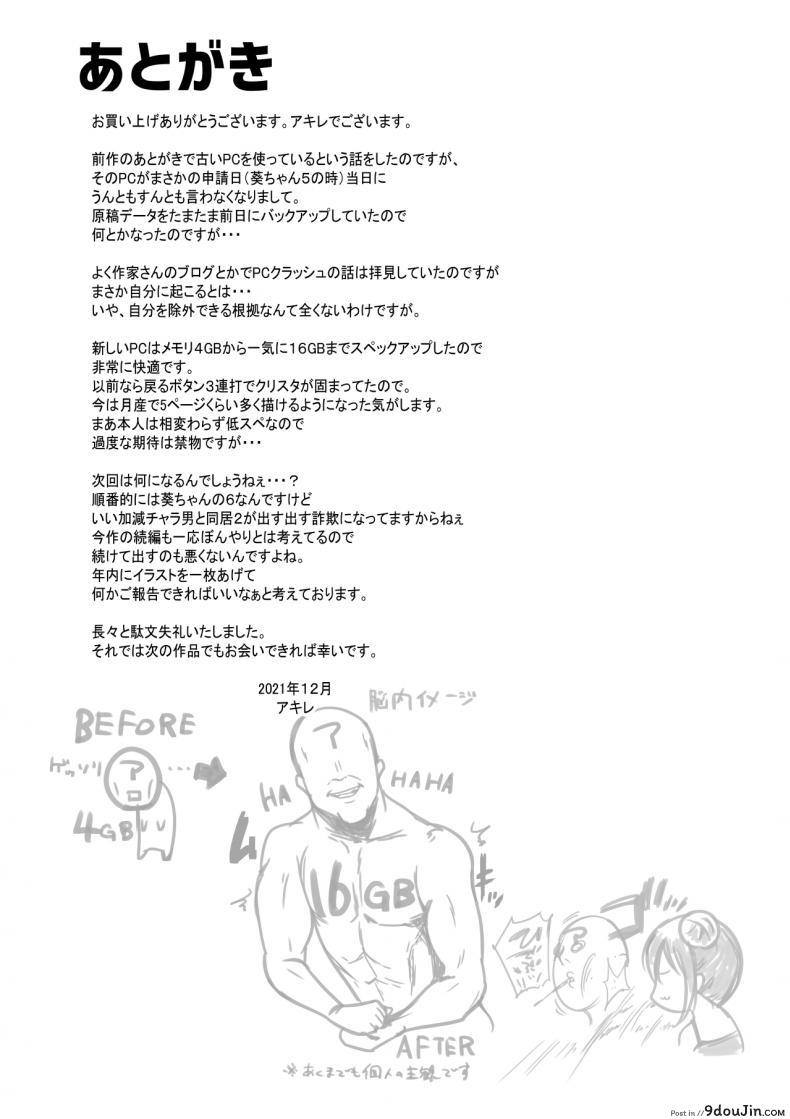 あとがき
お買い上げありがとうございます。アキレでございます。
前作のあとがきで古いPCを使っているという話をしたのですが、
そのPCがまさかの申請日(葵ちゃん5の時)当日に
うんともすんとも言わなくなりまして。
原稿データをたまたま前日にバックアップしていたので
何とかなったのですが・・・
よく作家さんのブログとかでPCクラッシュの話は拝見していたのですが
まさか自分に起こるとは・・・
いや、自分を除外できる根拠なんて全くないわけですが。
新しいPCはメモリ4GBから一気に16GBまでスペックアップしたので
非常に快適です。
以前なら戻るボタン3連打でクリスタが固まってたので。
今は月産で5ページくらい多く描けるようになった気がします。
まあ本人は相変わらず低スペなので
過度な期待は禁物ですが・・・
次回は何になるんでしょうねぇ・・・?
順番的には葵ちゃんの6なんですけど
いい加減チャラ男と同居2が出す出す詐欺になってますからねぇ
今作の続編も一応ぼんやりとは考えてるので
続けて出すのも悪くないんですよね。
年内にイラストを一枚あげて
何かご報告できればいいなぁと考えております。
長々と駄文失礼いたしました。
それでは次の作品でもお会いできれば幸いです。
2021年12月
アキレ
脳内イメージ
BEFORE
ゲッソリ
ア
ロ
4GB
ア
HA
HAHA
ムキッ
16GB
AFTER
※あくまでも個人の主観です
Post in // 9douJin.COM